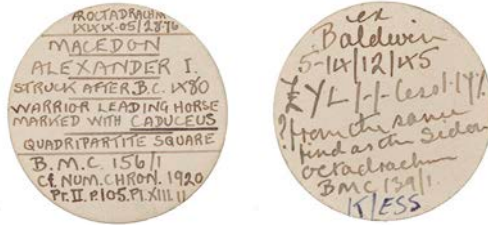 AROCTADRACHM
MACEDON
ALEXANDER I.
STRUCK AFTER B.C. 480
WARRIOR LEADING HORSE
MARKED WITH CADUCEUS
QUADRIPARTITE SQUARE
B.M.C. 156/1
Cf. NUM. CHRON. 1920
Pt. II. P.105. Pl. XIII 11
ex
Baldwin
?from the same
find as the
octadrachm
BMC 139/1.
K/ESS